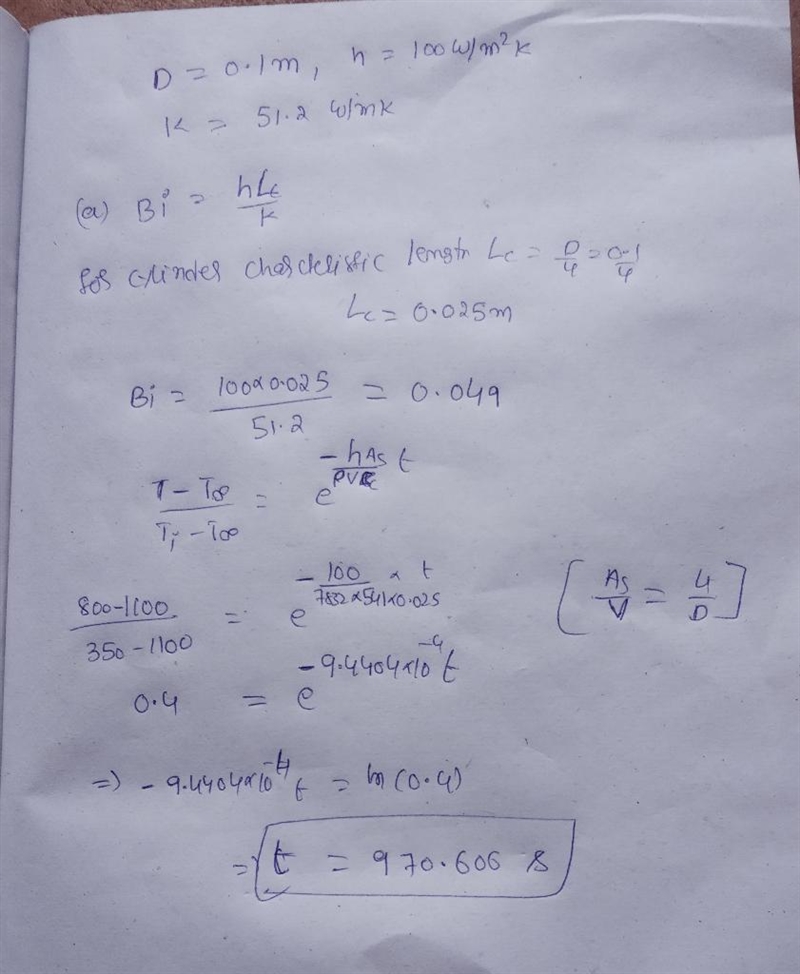 D = 0.1m, h = 100 W/m²K
K = 51.2 W/mK
(a) Bi = hLc/K
for cylinder charcteristic length Lc = D/4 = 0.1/4
Lc = 0.025m
Bi = 100×0.025/51.2 = 0.049
T - T∞/Ti - T∞ = e^(-hAs/ρVC t)
800-1100/350-1100 = e^(-100/7832×541×0.025 × t) [As/V = 4/D]
0.4 = e^(-9.4404×10^-4 t)
=> -9.4404×10^-4 t = ln(0.4)
=> t = 970.606 s